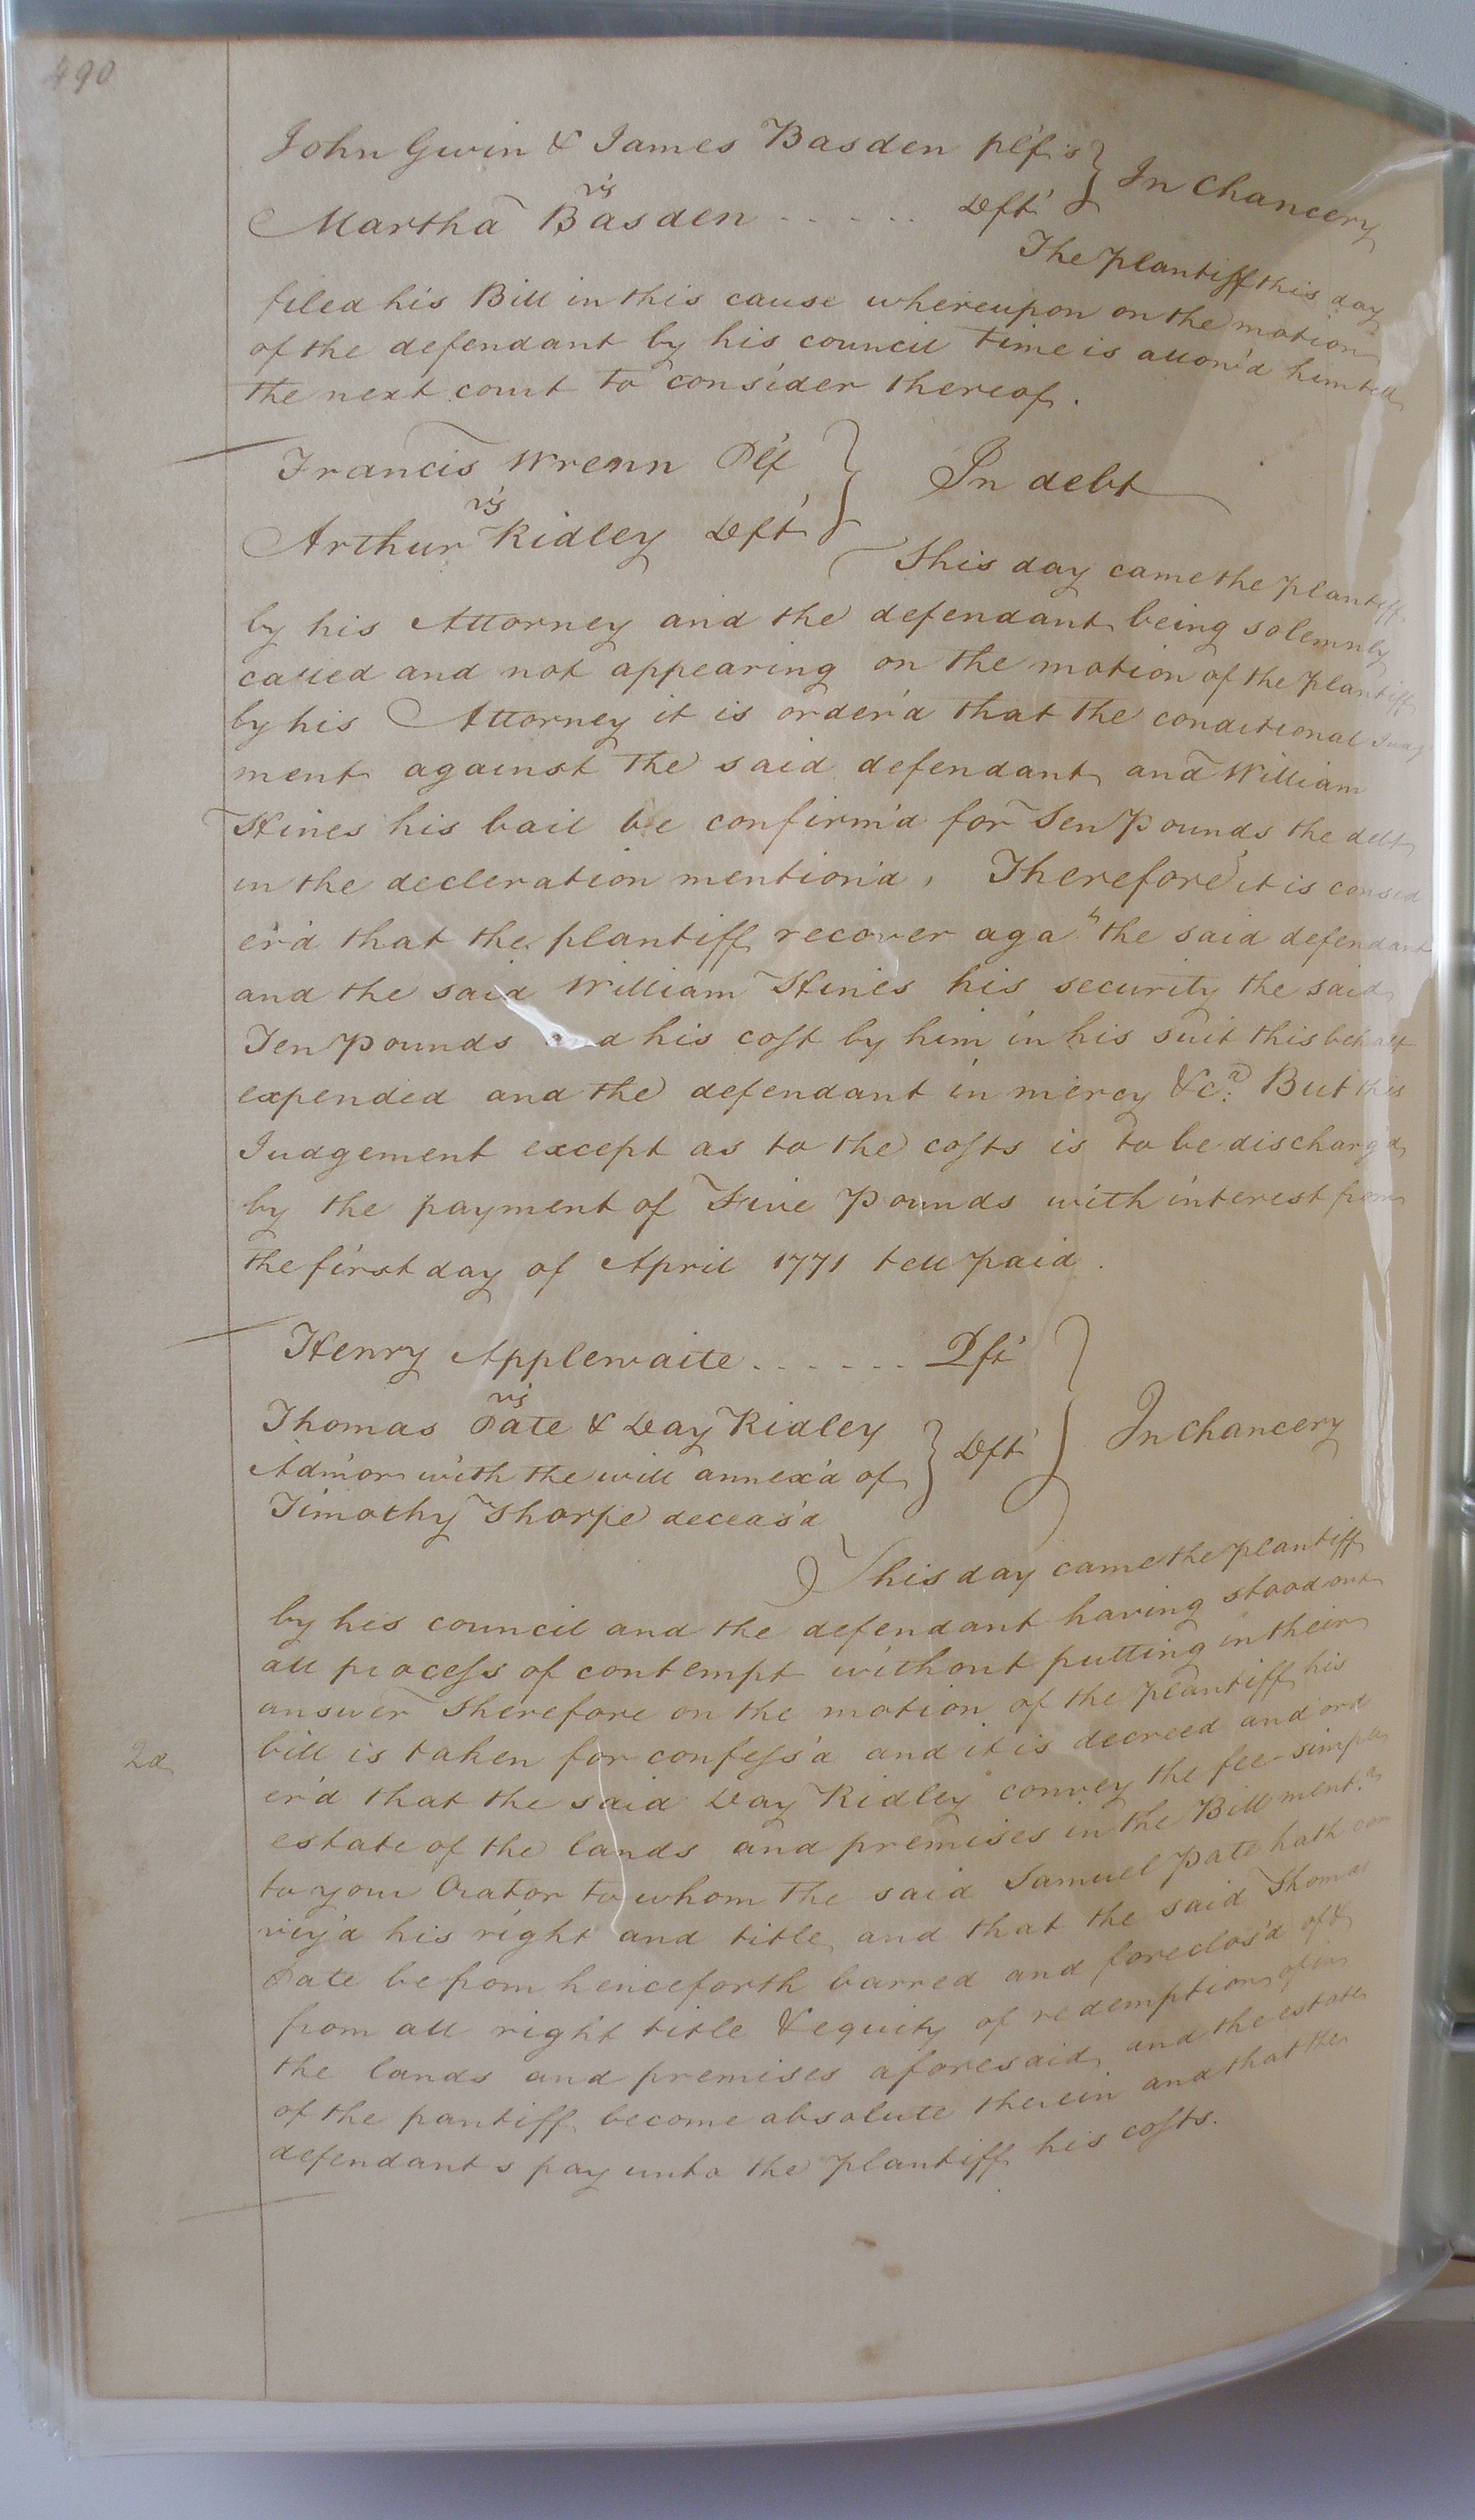 490
John Gwin & James Basden plfs } In Chancery
vs
Martha Basden . . . . . . Dft
The plantiff this day
filed his Bill in this cause whereupon on the motion
of the defendant by his council time is allow'd him till
the next court to consider thereof.
Francis Wrenn Plf } In debt
vs
Arthur Ridley Dft
This day came the plantiff
by his Attorney and the defendant being solemnly
called and not appearing on the motion of the plantiff
by his Attorney it is order'd that the conditional Judg
ment against the said defendant and William
Hines his bail be confirm'd for Ten Pounds the debt
in the decleration mention'd, Therefore it is consid
er'd that the plantiff recover aga.st the said defendant
and the said William Hines his security the said
Ten Pounds d his cost by him in his suit this behalf
expended and the defendant in mercy &c.a But this
Judgement except as to the costs is to be discharg'd
by the payment of Five Pounds with interest from
the first day of April 1771 till paid.
Henry Applewaite . . . . . . Plft
vs
Thomas Pate & Day Ridley } Dft } In Chancery
Adm'or with the will annex'd of
Timothy Thorpe deceas'd
This day came the plantiff
by his council and the defendant having stood out
all process of contempt without putting in their
answer Therefore on the motion of the plantiff his
bill is taken for confess'd and it is decreed and ord
2d
er'd that the said Day Ridley convey the fee simple
estate of the lands and premises in the Bill ment.d
to your Orator to whom the said Samuel Pate hath con
vey'd his right and title and that the said Thomas
Pate be from henceforth barred and foreclos'd of &
from all right title & equity of redemption of in
the lands and premises aforesaid and the estate
of the pantiff become absolute therein and that the
defendants pay unto the plantiff his costs.